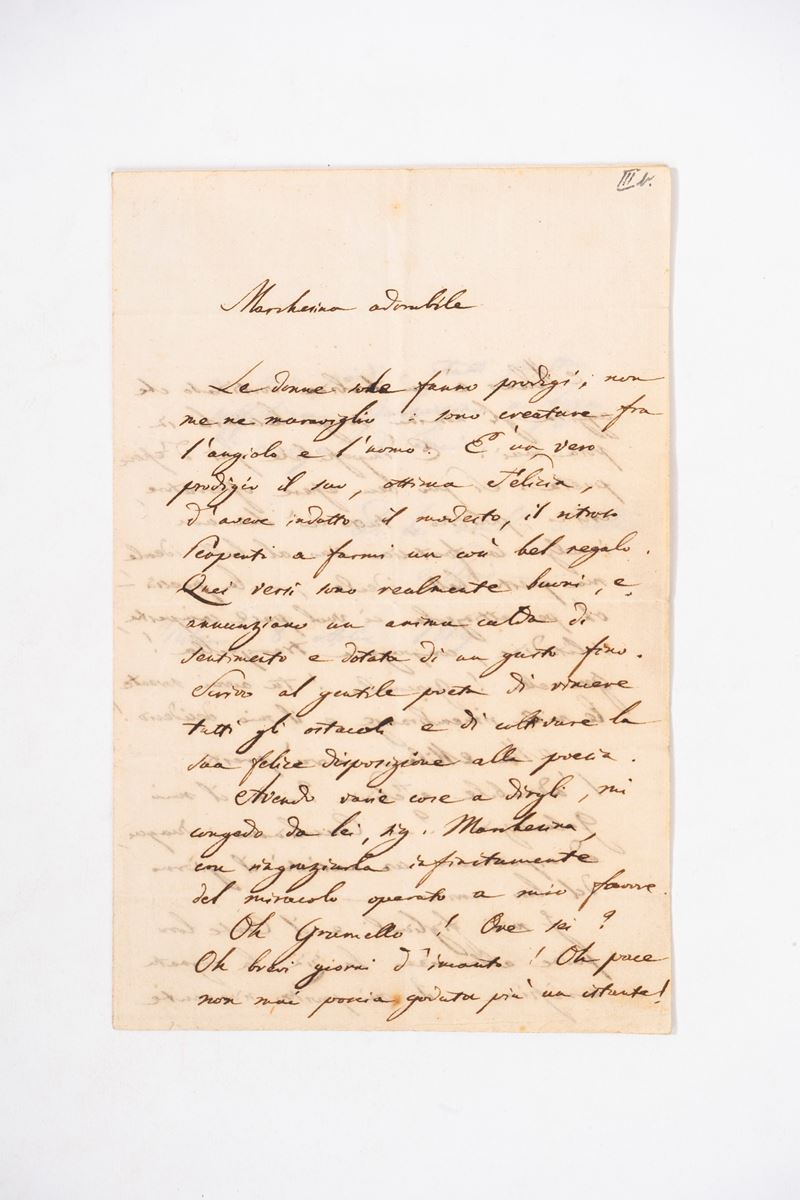 III b.
Marchesina adorabile
Le donne sole fanno prodigi; non
me ne maraviglio: sono creature fra
l'angiolo e l'uomo. E' un vero
prodigio il suo, ottima Felicia,
d'avere indotto il modesto, il ritroso
a farmi un così bel regalo.
Quei versi sono realmente buoni, e
annunziano un anima calda di
sentimento e dotata di un gusto fino.
Scrivo al gentile poeta di vincere
tutti gli ostacoli e di coltivare la
sua felice disposizione alla poesia.
Avendo varie cose a dirgli, mi
congedo da lei, sig. Marchesina,
con ringraziarla infinitamente
del miracolo operato a mio favore.
Oh Grumello! Ove sei?
Oh brevi giorni d'incanto! Oh pace
non mai poscia goduta più un istante!